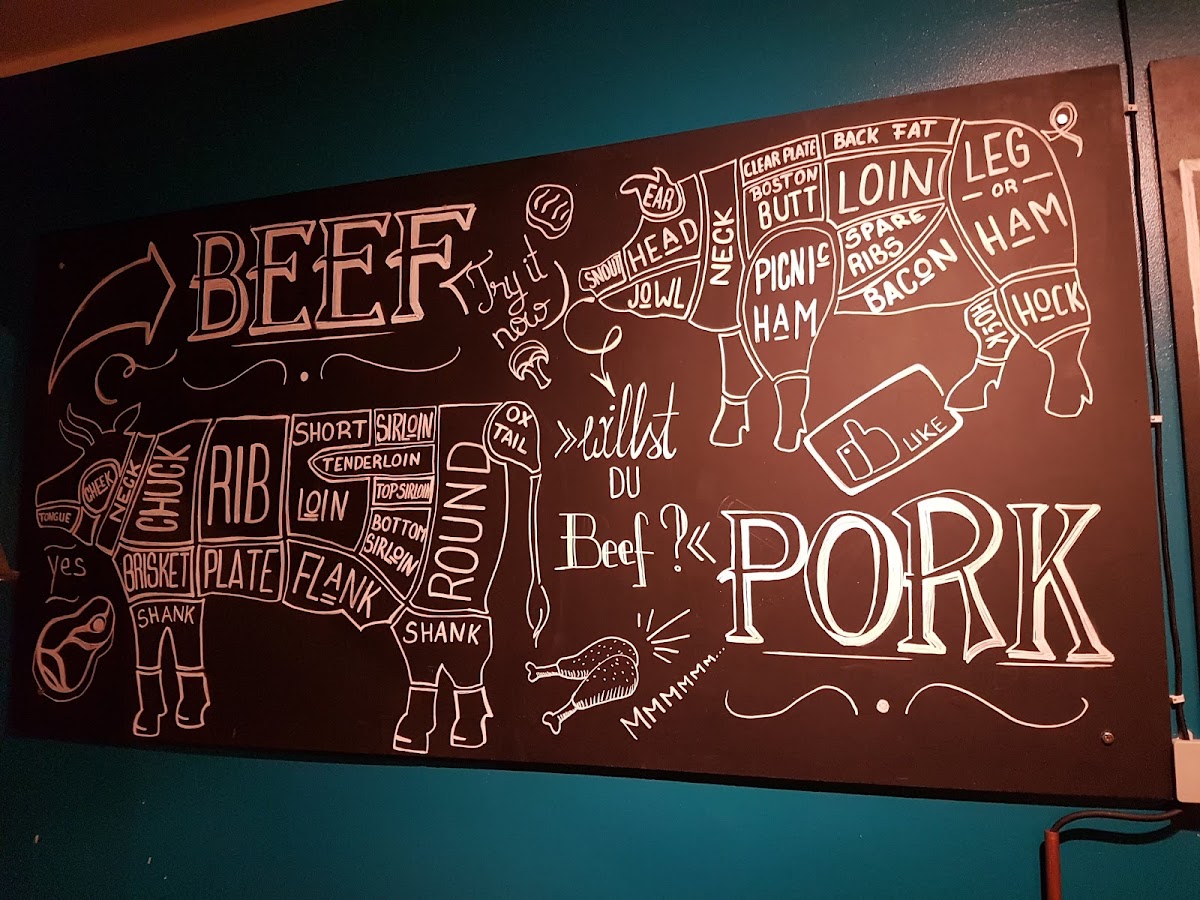 BEEF
Try it
now
CHEEK
TONGUE
NECK
CHUCK
RIB
SHORT
LOIN
SIRLOIN
TENDERLOIN
TOP SIRLOIN
BOTTOM
SIRLOIN
ROUND
OX
TAIL
BRISKET
PLATE
FLANK
SHANK
SHANK
yes
»willst
DU
Beef?«
MMMMMM...
EAR
SNOUT
HEAD
JOWL
NECK
CLEAR PLATE
BOSTON
BUTT
PICNIC
HAM
BACK FAT
LOIN
SPARE
RIBS
BACON
LEG
OR
HAM
HOCK
HOCK
LIKE
PORK